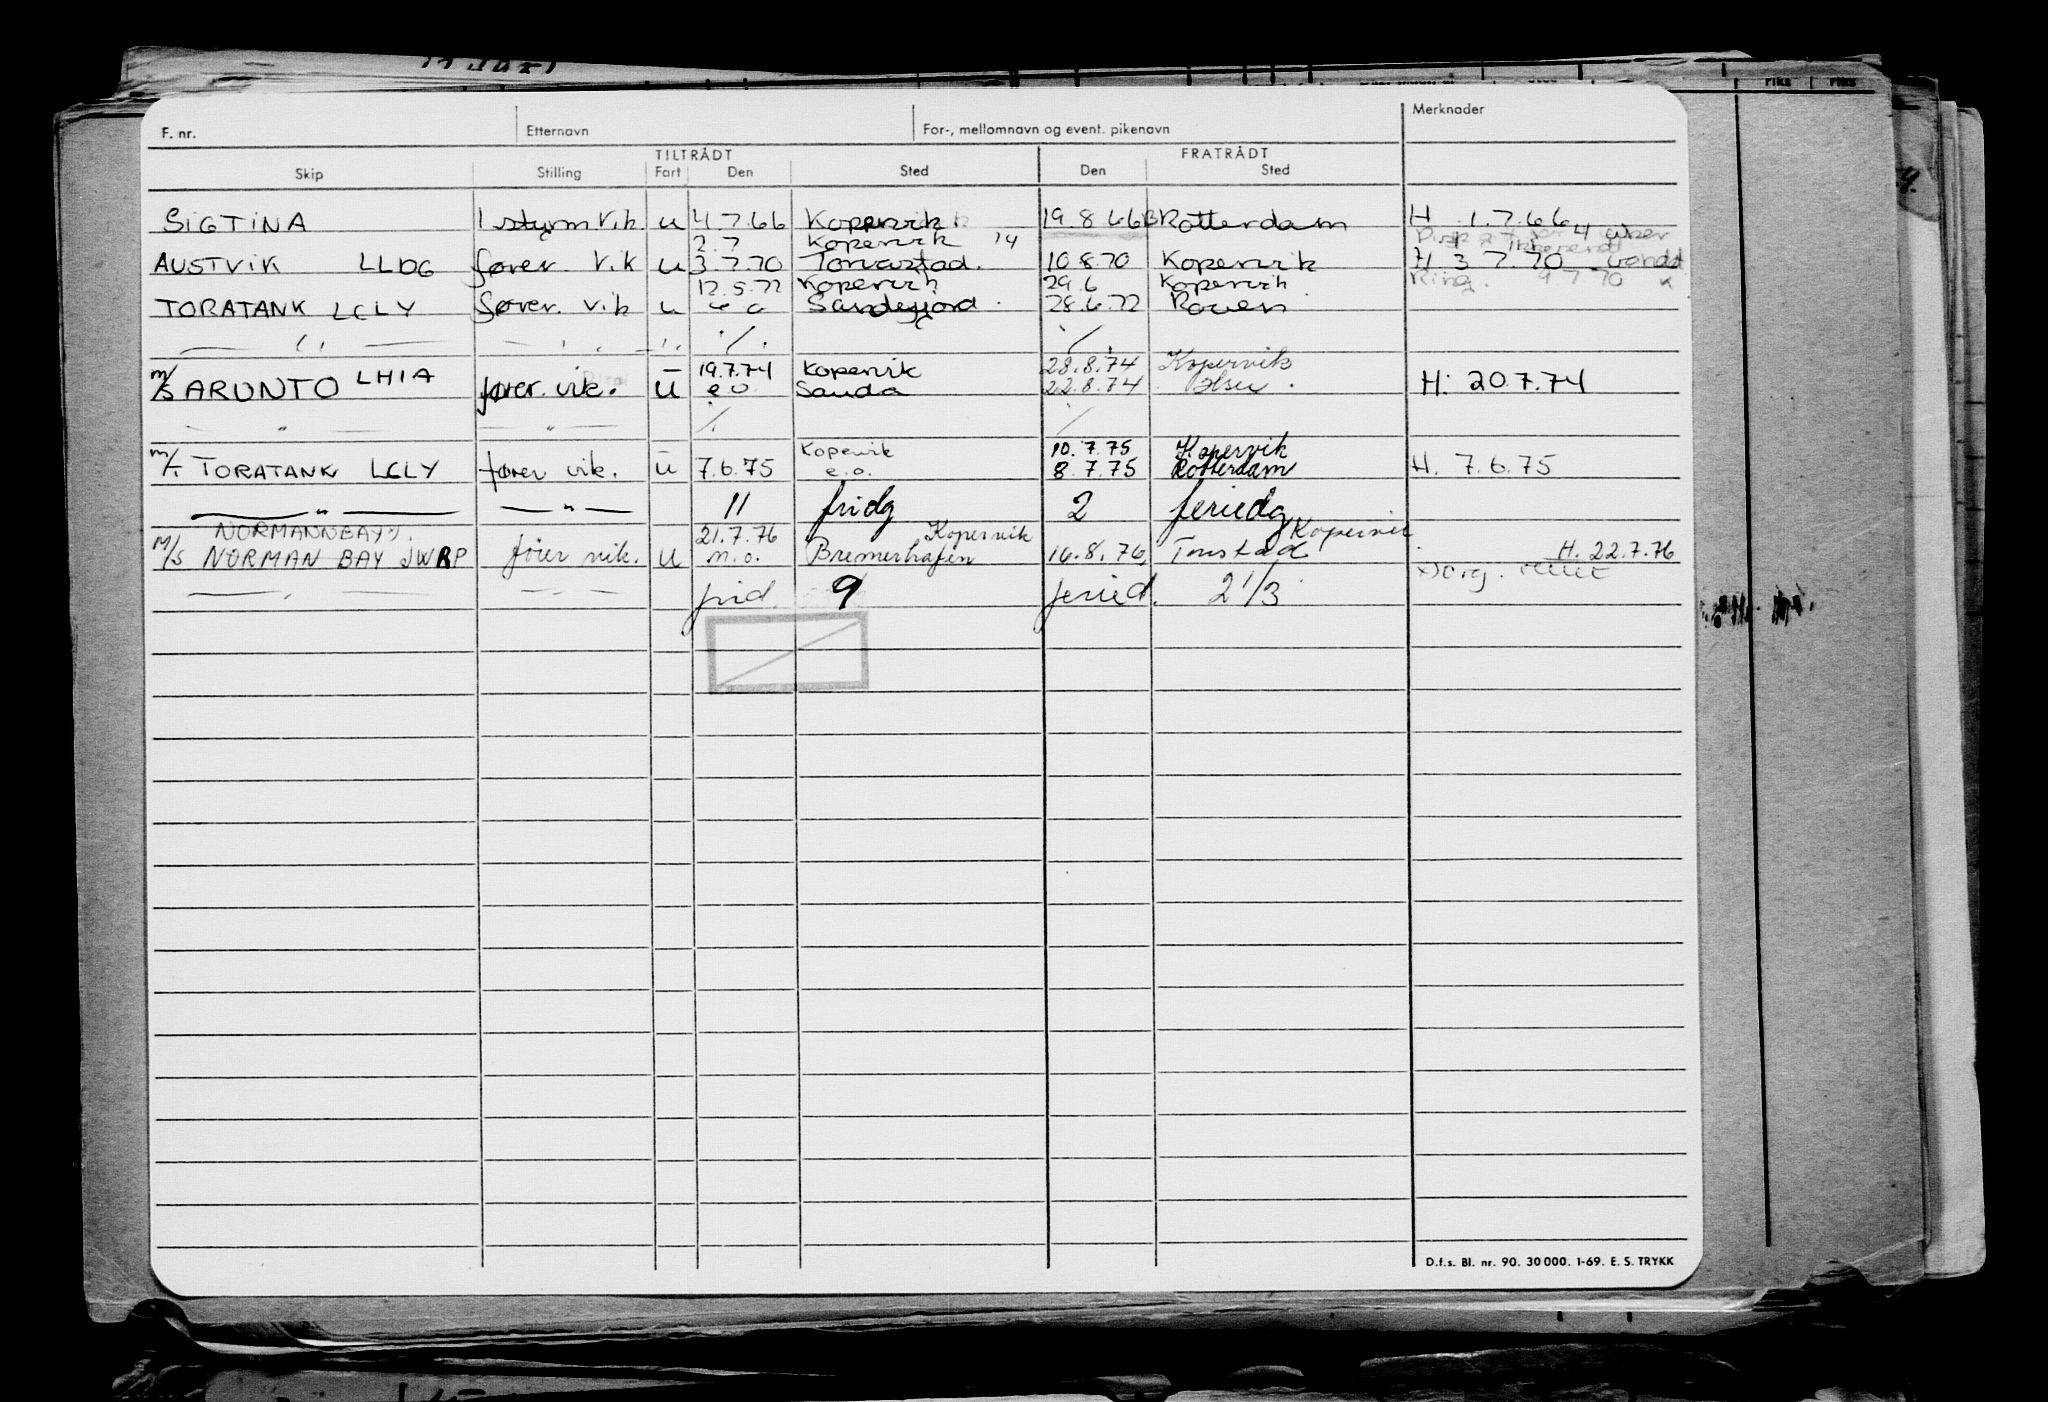 F. nr. Etternavn For-, mellomnavn og event. pikenavn Merknader
TILTRÅDT FRATRÅDT
Skip Stilling Fart Den Sted Den Sted
SIGTINA 1 styrm vik. u 4.7.66 Kopervik 19.8.66 Rotterdam H 1.7.66
2.7 Kopervik
AUSTVIK LLDG fører. vik u 3.7.70 Torvastad. 10.8.70 Kopervik H 3 7.70
12.5.72 Kopervik 29.6 Kopervik Ring. 9 7 70
TORATANK LCLY fører. vik u e o Sandefjord. 28.6.72 Rouen
— " — — " — " ./. ./.
LHIA 19.7.74 Kopervik 28.8.74 Kopervik
M/S ARUNTO fører. vik. u e.o. Sauda 22.8.74 H: 20.7.74
— " — — " — ./. ./
Kopervik 10.7.75 Kopervik
M/T TORATANK LCLY fører vik. u 7.6.75 e.o. 8.7.75 Rotterdam H. 7.6.75
— " — — " — 11 fridg 2 feriedg
NORMANNBAY 21.7.76 Kopervik Kopervik
M/S NORMAN BAY JWRP fører vik. u m.o. Bremerhafen 16.8.76 Tonstad H. 22.7.76
— " — — " — frid. 9 feried. 2 1/3
D.f.s. Bl. nr. 90. 30 000. 1-69. E. S. TRYKK